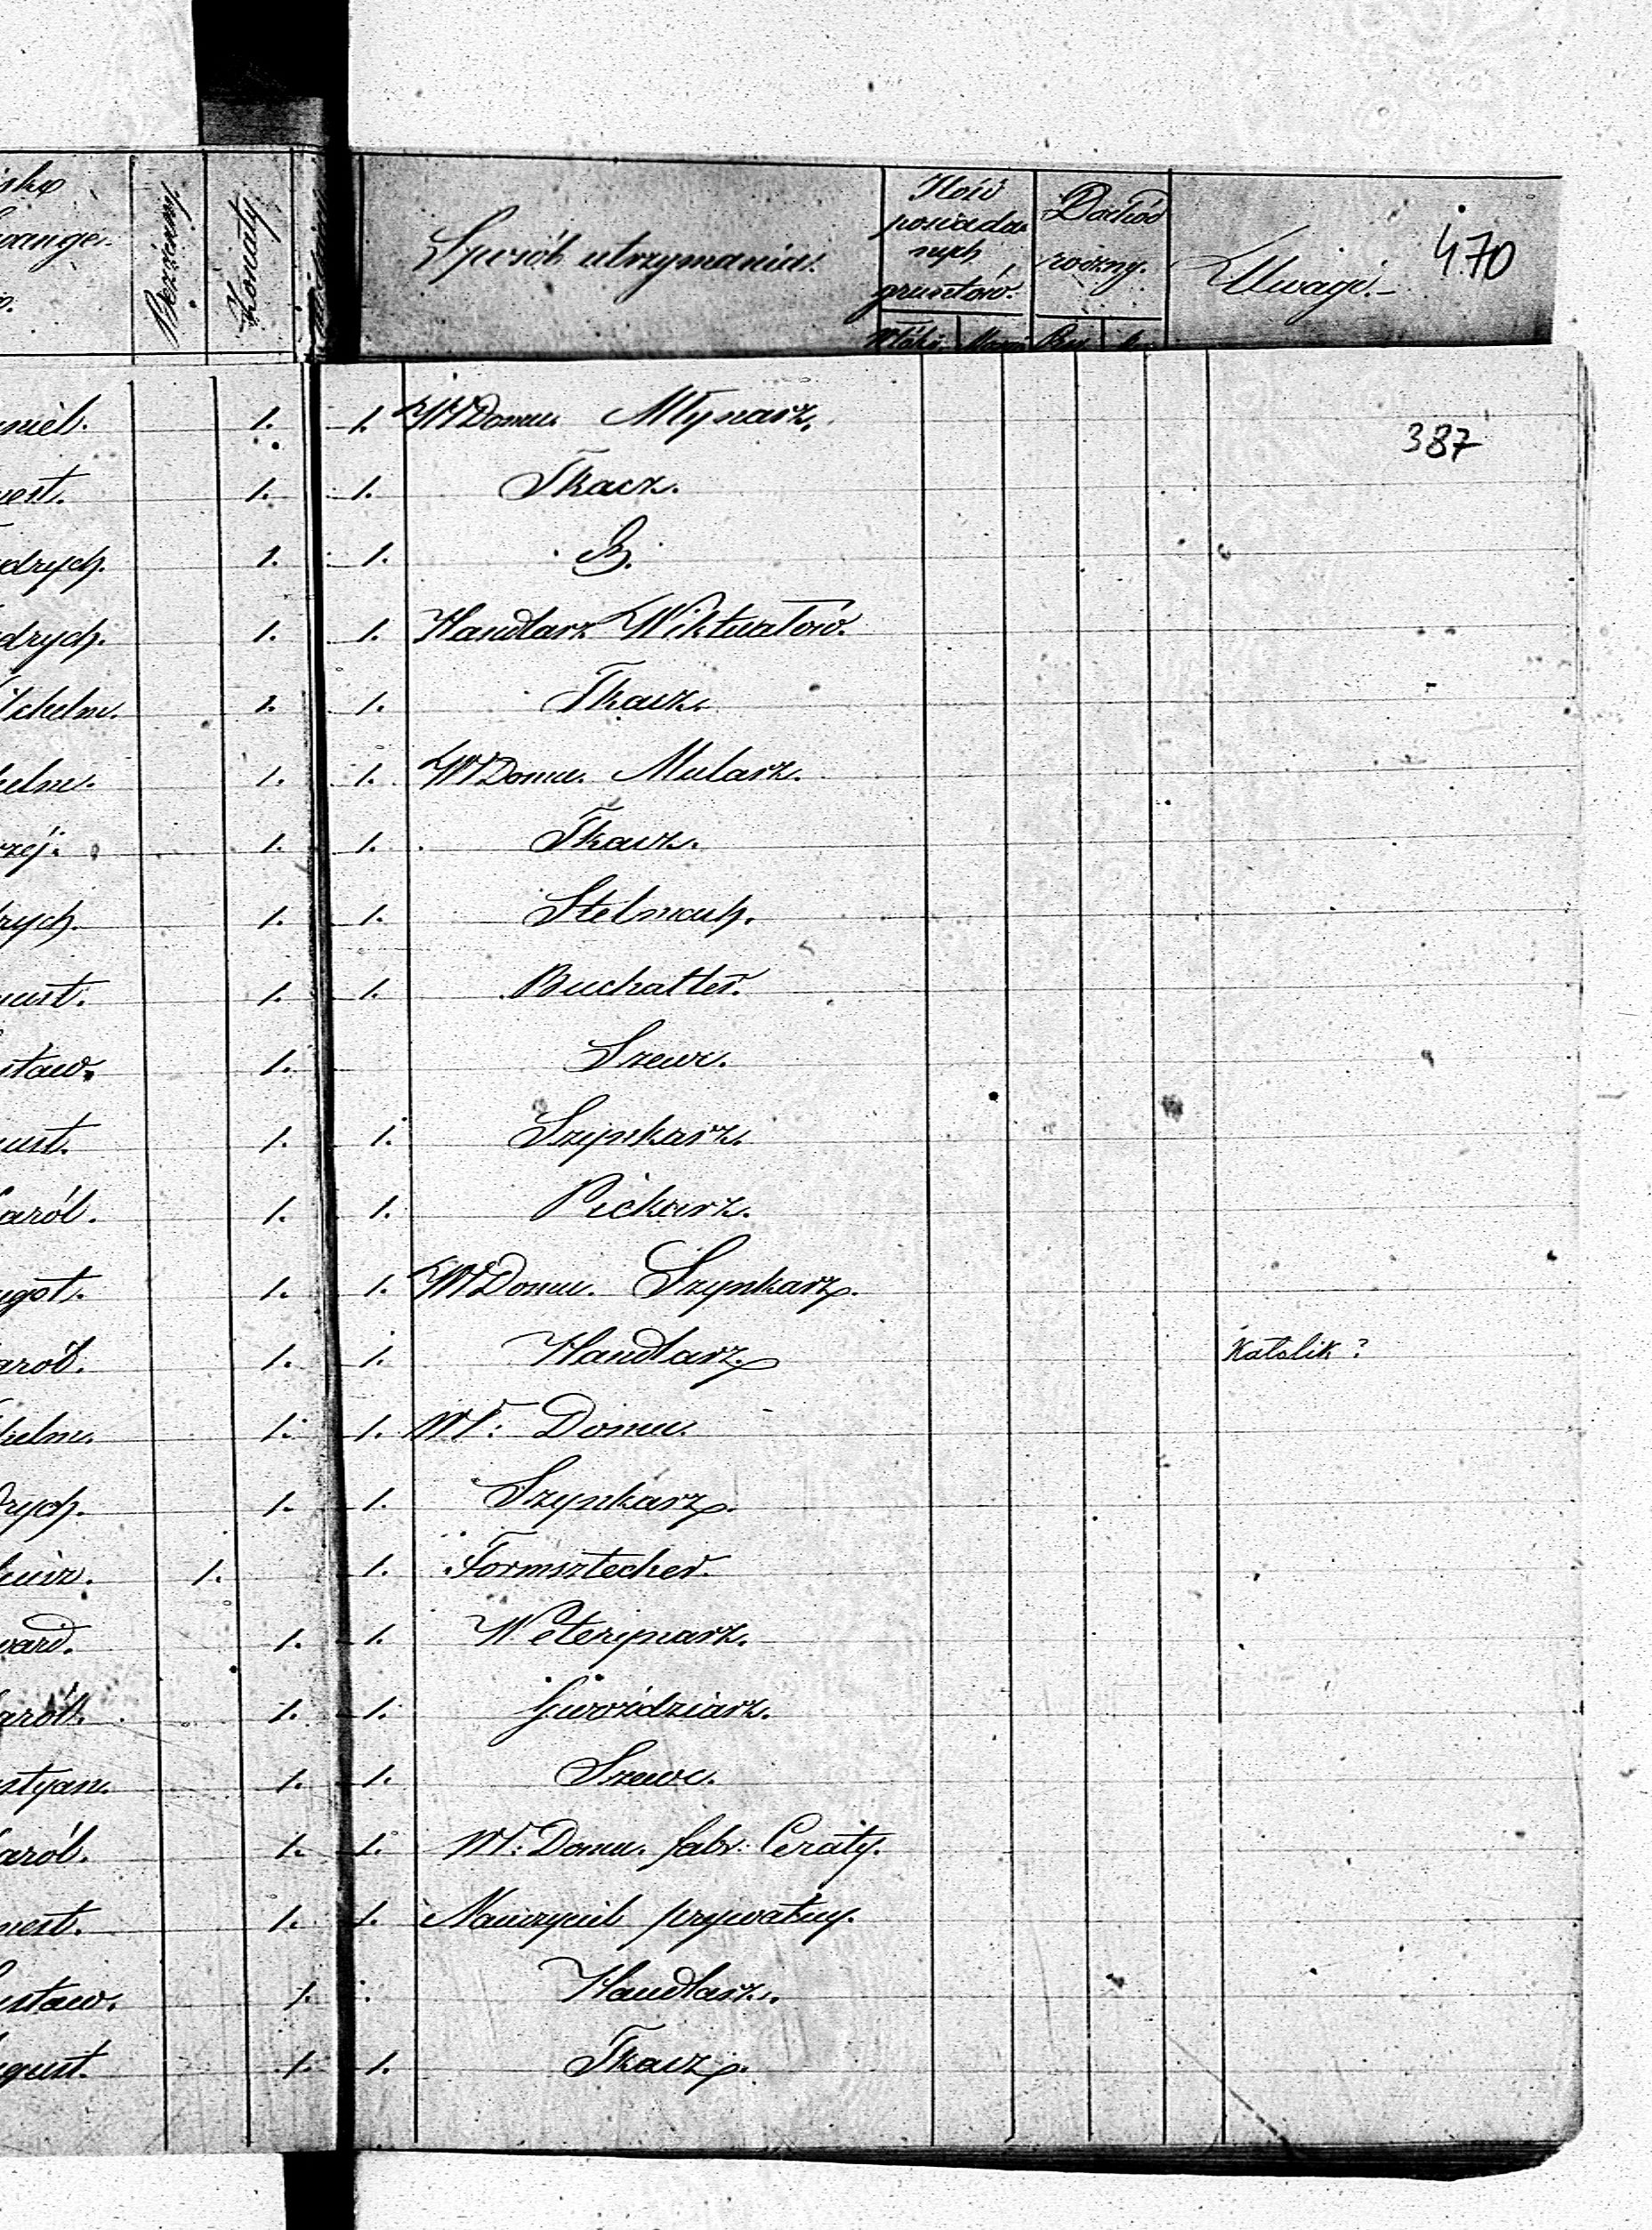 Bezżenny. Żonaty Sposób utrzymania. Ilość posiadanych gruntów. Dochód roczny. Uwagi.- 470
387
1. 1. W Domu. Młynarz.
1. 1. Tkacz.
drych. 1. 1.
drych. 1. 1. Handlarz Wiktuałów.
1. 1. Tkacz.
helm. 1. 1. W Domu. Mularz.
1. 1. Tkacz.
rych. 1. 1. Stelmach.
ust. 1. 1. Buchalter.
staw. 1. Szewc.
ust. 1. 1. Szynkarz.
aról. 1. 1. Piekarz.
1. 1. W Domu. Szynkarz.
aról. 1. 1. Handlarz. Katolik?
helm. 1. 1. W: Domu.
drych. 1. 1. Szynkarz.
1. 1. Formsztecher.
ward. 1. 1. Weterynarz.
aról. 1. 1. Gwoździarz.
styan. 1. 1. Szewc.
aról. 1. 1. W: Domu. fabr: Ceraty.
nest. 1. 1. Nauczyciel prywatny.
staw. 1. Handlarz.
gust. 1. 1. Tkacz.